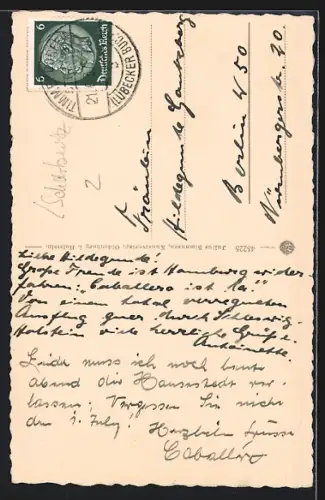 6
Deutsches Reich
6
TIMMENDORFER
21
(LÜBECKER BUCHT)
(Scharbeutz
2
Fräulein
Hildegunde
Berlin W 50
Nürnbergerstr. 20
Julius Simonsen, Kunstverlag, Oldenburg i. Holstein
45225
Liebe Hildegunde!
Große Freude ist Hamburg wieder-
fahren: "Caballero ist la"
Von einem total verregneten
Ausflug quer durch Schleswig-
Holstein viele herrliche Grüße
Antoinette.
Leider muss ich noch heute
abend die Hansestadt ver-
lassen; Vergessen Sie nicht
den 1. July! Herzliche Grüsse
Caballero